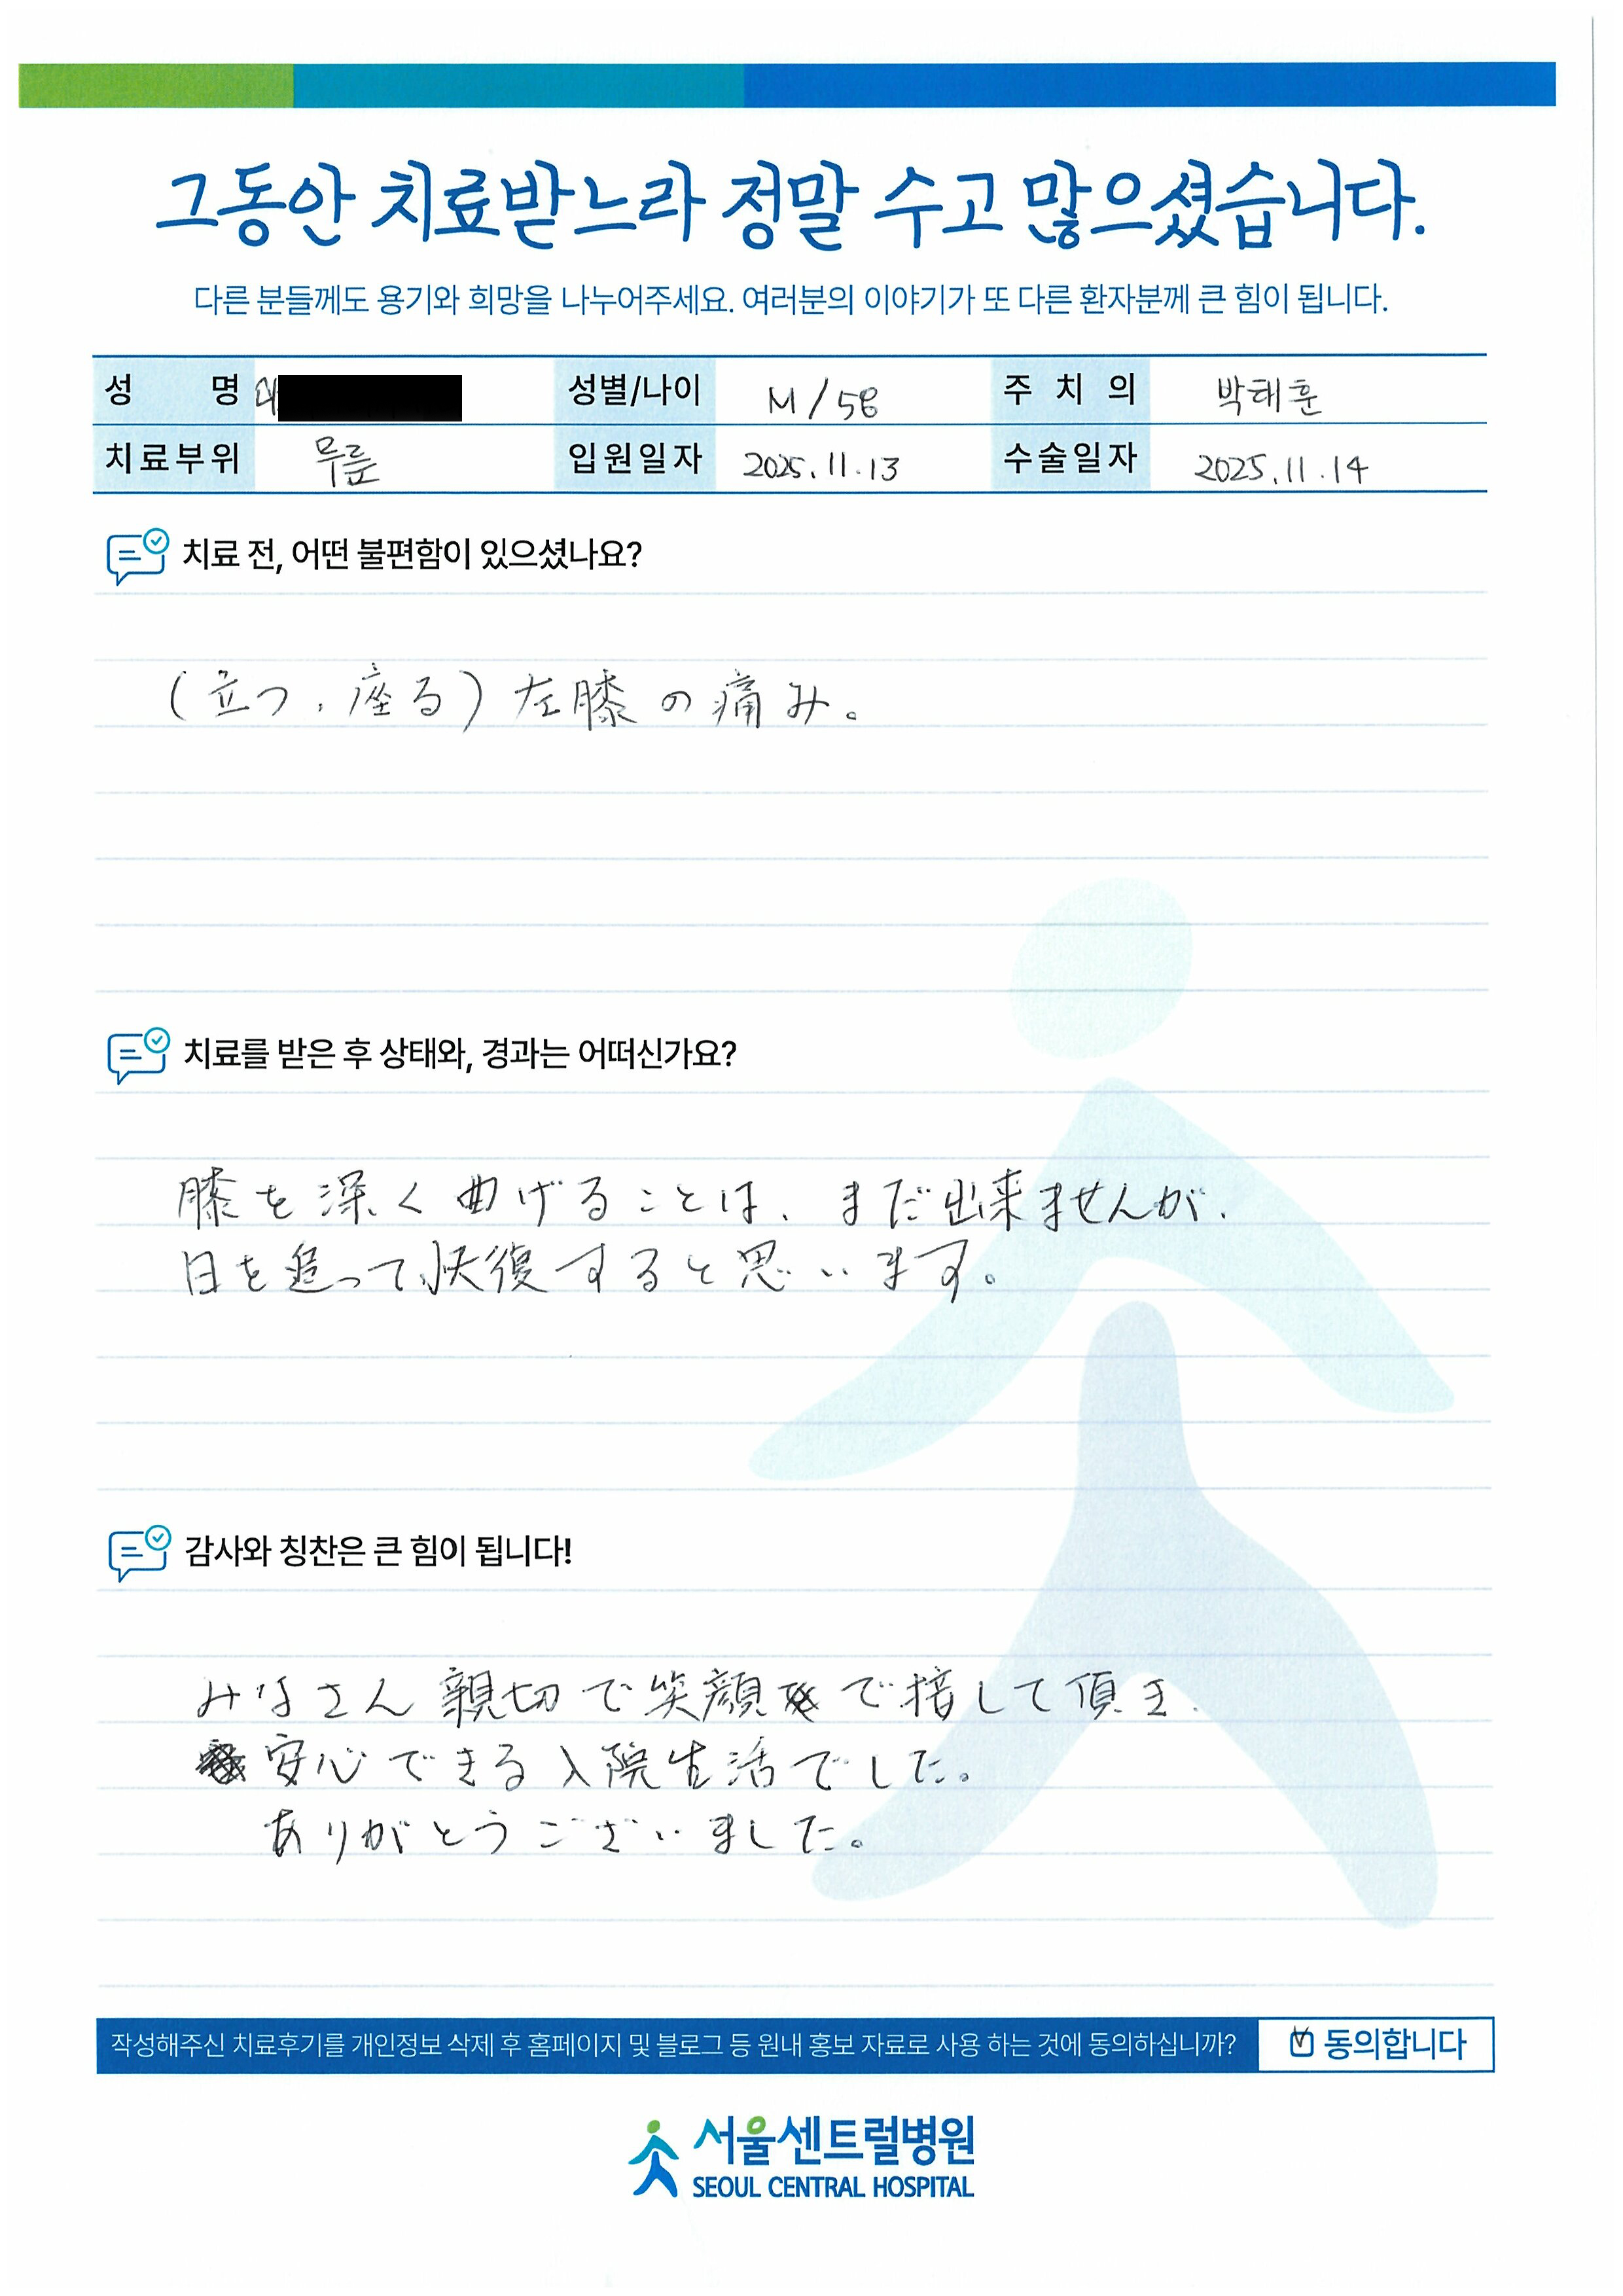 그동안 치료받느라 정말 수고 많으셨습니다.
다른 분들께도 용기와 희망을 나누어주세요. 여러분의 이야기가 또 다른 환자분께 큰 힘이 됩니다.
성 명 성별/나이 M/58 주 치 의 박태훈
치료부위 무릎 입원일자 2025.11.13 수술일자 2025.11.14
치료 전, 어떤 불편함이 있으셨나요?
(立つ、座る)左膝の痛み。
치료를 받은 후 상태와, 경과는 어떠신가요?
膝を深く曲げることは、まだ出来ませんが、
日を追って快復すると思います。
감사와 칭찬은 큰 힘이 됩니다!
みなさん親切で笑顔で接して頂き、
安心できる入院生活でした。
ありがとうございました。
작성해주신 치료후기를 개인정보 삭제 후 홈페이지 및 블로그 등 원내 홍보 자료로 사용 하는 것에 동의하십니까? 동의합니다
서울센트럴병원
SEOUL CENTRAL HOSPITAL